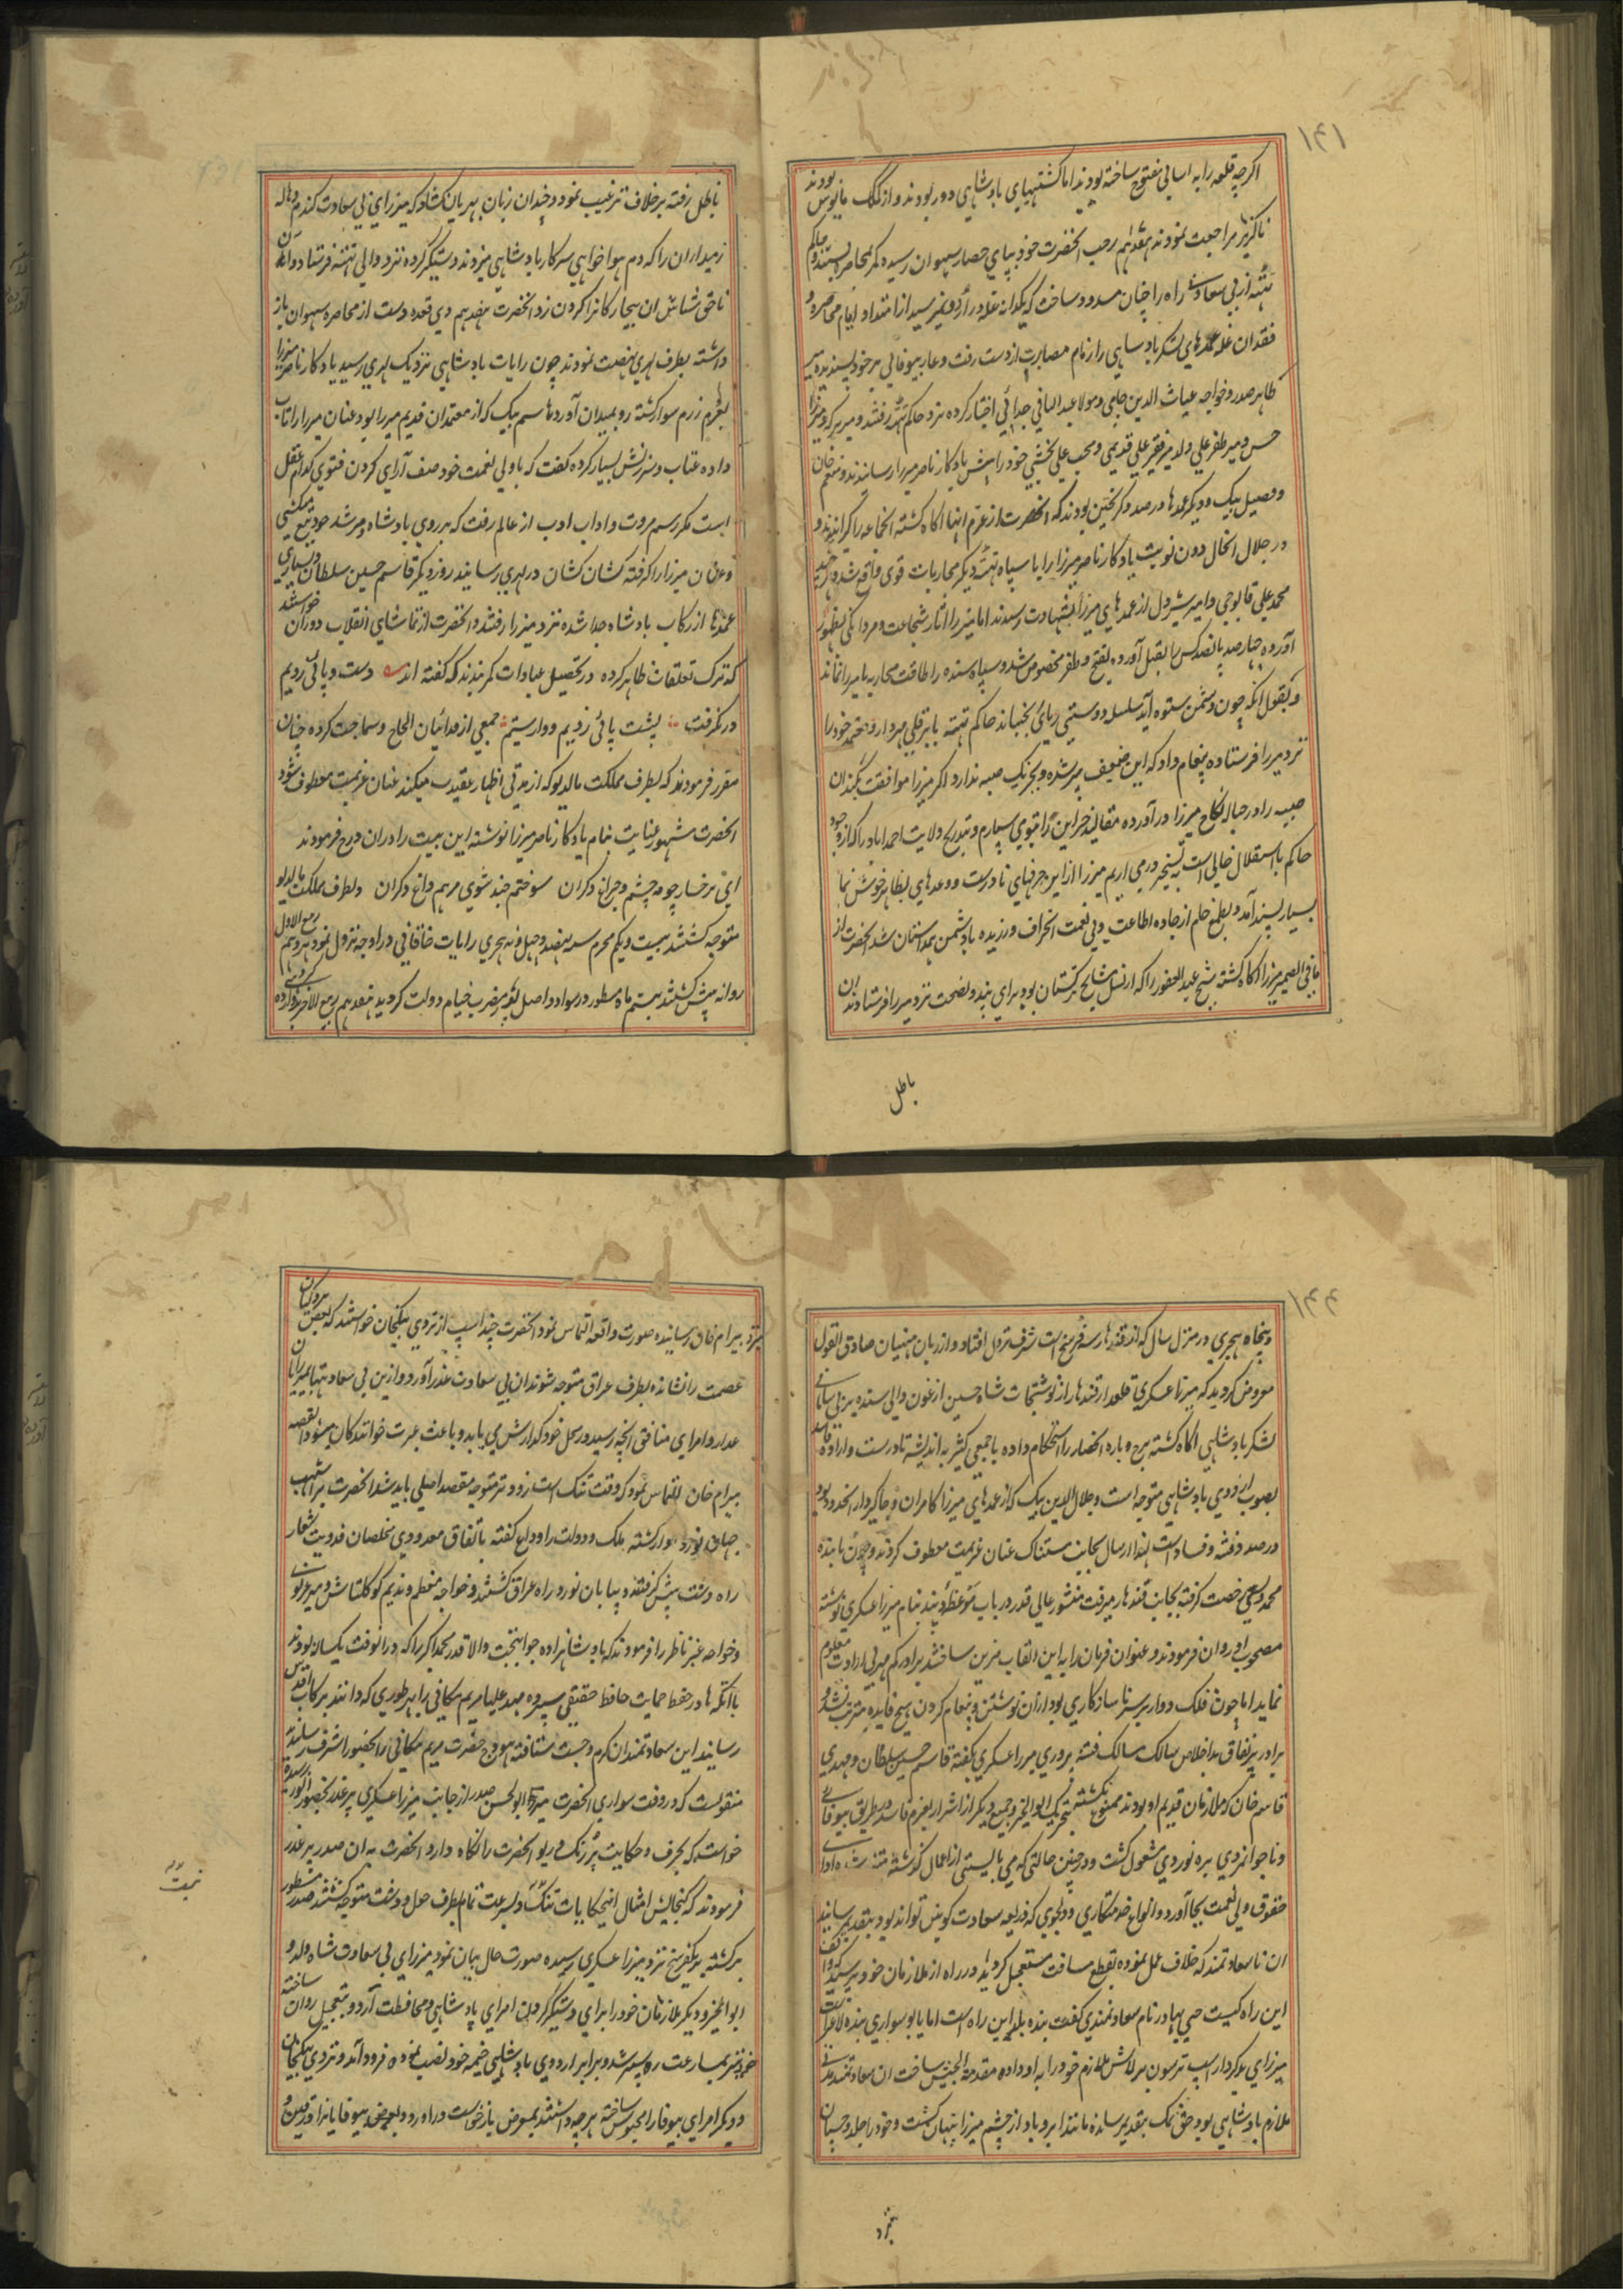 ۱۴۱
اکرچه قلعه را به اسانی مفتوح ساخته بودند اما کشتیهای بادشاهی دور بودند و از کمک مایوس بودند
ناکزیر مراجعت نمودند هفدهم رجب انحضرت خود بپای حصار سهوان رسیده کمر محاصره بستند و حاکم
تته از بی سعادتی راه را چنان مسدود ساخت که یکدانه غله در اردو نمیرسید از امتداد ایام محاصره و
فقدان غله عمدهای لشکر بادشاهی را زمام مصابرت از دست رفت و عار بیوفائی بر خود پسندیده میر
طاهر صدر و خواجه غیاث الدین جامی و مولانا عبد الباقی جدائی اختیار کرده نزد حاکم تته رفتند و میر برکه و میرزا
حسن و میر ظفر علی ولد میر فقیر علی قدیمی و محب علی بخشی خود را پیش یادکار ناصر میرزا رسانیدند و منعم خان
و فصیل بیک و دیکر عمدها در صدد کریختن بودند که انحضرت از عزم انها اکاه کشته انجماعه را کردانیدند و
در خلال انحال دون نوبت یادکار ناصر میرزا را با سپاه تته دیکر محاربات قوی واقع شد و هر چند
محمد علی قابوچی و امیر شیردل از عمدهای میرزا بشهادت رسیدند اما میرزا اثار شجاعت و مردانکی بظهور
آورده چهار صد پانصد کس را بقتل آورده بفتح و ظفر مخصوص شد و سپاه سنده را طاقت محاربه با میرزا نماند
و بقول انکه چون دشمن ستوه آید سلسله دوستی ریائی بجنباند حاکم تته بابر قلی مهردار و معتمد خود را
نزد میرزا فرستاده پیغام داد که این ضعیف پیر شده و بجز یک صبیه ندارد اکر میرزا موافقت بکند ان
صبیه را در حباله نکاح میرزا در آورده مقالید خزاین را بتو می سپارم و بتدریج ولایت احمداباد را که از وجود
حاکم باستقلال خالی است بتسخیر در می اریم میرزا را از این حرفهای نادرست و وعدهای بظاهر خوش نما
بسیار پسند آمد و بطمع خام از جاده اطاعت ولی نعمت انحراف ورزیده با دشمن همداستان شد انحضرت از
ما فی الضمیر میرزا اکاه کشته شیخ عبد الغفور را که از نسل مشایخ ترکستان بود برای پند و نصحت نزد میرزا فرستادند ان
باطل
باطل رفته بر خلاف ترغیب نمود و چندان زبان بهربان کشاد که میرزای بی سعادت کندم و هاله
زمیداران را که دم هواخواهی سرکار بادشاهی میزدند دستکیر کرده نزد والی تته فرستاد و ان
ناحق شناس ان بیچارکانرا کردن زد انحضرت هفدهم ذی قعده دست از محاصره سهوان باز
داشته بطرف لهری نهضت نمودند چون رایات بادشاهی نزدیک لهری رسید یادکار ناصر میرزا
بعزم رزم سوار کشته رو بمیدان آورد هاسم بیک که از معتمدان قدیم میرزا بود عنان میرزا را تاب
داده عتاب و سرزنش بسیار کرده کفت که با ولی نعمت خود صف آرای کردن فتوی کدام عقل
است مکر رسم مروت و اداب ادب از عالم رفت که بر روی بادشاه و مرشد خود تیغ میکشی
و عنان میرزا را کرفته کشان کشان در لهری رسانید روز دیکر قاسم حسین سلطان و بسیاری
عمدها از رکاب بادشاه جدا شده نزد میرزا رفتند و انحضرت از تماشای انقلاب دوران خواستند
که ترک تعلقات ظاهر کرده در تحصیل عبادات کمر بندند که کفته اند دست و پائی زدیم
در نکرفت پشت پائی زدیم و وارستیم جمعی از فدائیان الحاح و سماجت کرده چنان
مقرر فرمودند که بطرف مملکت مالدیو که از مدتی اظهار عقیدت میکند عنان عزیمت معطوف شود
انحضرت منشور عنایت بنام یادکار ناصر میرزا نوشته این بیت را در ان درج فرمودند
ای برخسار چو مه چشم و چراغ دکران سوختم چند شوی مرهم داغ دکران و بطرف مملکت مالدیو
متوجه کشتند بیست و یکم محرم سنه نهصد و چهل و نه هجری رایات خاقانی در اوجه نزول نمود هژدهم ربیع الاول
روانه پیش کشتند بیستم ماه مسطور در سواد و اصل پور مضرب خیام دولت کردید هفدهم ربیع الاخر
۱۴۴
و پنجاه هجری در منزل سال که از قندهار سه فرسنخ است شرف نزول افتاد و از زبان منهیان صادق القول
معروض کردید که میرزا عسکری قلعدار قندهار از نوشتجات شاه حسین ارغون والی سنده بر بی سامانی
لشکر بادشاهی اکاه کشته برج و باره انحصار را استحکام داده با جمعی کثیر به اندیشه نادرست و اراده فاسد
بصوب اردوی بادشاهی متوجه است و جلال الدین بیک که از عمدهای میرزا کامران و جاکیردار انحدود بود
در صدد فتنه و فساد است لهذا از سال بجانب مستنک عنان عزیمت معطوف کردند و چون پاینده
محمد ویسی رخصت کرفته بجانب قندهار میرفت منشور عالی قدر در باب موعظه و پند بنام میرزا عسکری نوشته
مصحوب او روان فرمودند و عنوان فرمان را به این القاب مزین ساختند برادر کم مهر بی ارادت معلوم
نماید اما چون فلک دوار بر سر ناسازکاری بود ازان نوشتن و پیغام کردن هیچ فایده مترتب نشد و
برادر پر نفاق بد اخلاص سالک مسالک فتنه پروری میرزا عسکری بکفته قاسم حسین سلطان و مهدی
قاسم خان که ملازمان قدیم او بودند ممنوع نکشته بتحریک ابو الخیر و جمیع دیکر از اشرار بعزم فاسد بطریق بیوفائی
و ناجوانمردی بره نوردی مشغول کشت و در چنین حالتی که می بایستی از اعمال کذشته متنبه شده ادای
حقوق ولی نعمت بجا آورد و انواع خدمتکاری و دلجوی که ذریعه سعادت کونین تواند بود بتقدیم رساند
ان نا سعادتمند که خلاف عمل نموده بقطع مسافت مستعجل کردید و در راه از ملازمان خود پرسید که
این راه کیست حی بهادر نام سعادتمندی کفت بنده بلد این راه است اما یابو سواری بنده لاغر است
میرزای بد کردار اسپ ترسون برلاش ملازم خود را به او داده مقدمة الجیش ساخت ان سعادتمند مدتی
ملازم بادشاهی بود حق نمک بتقدیم رسانده مانند ابر و باد از چشم میرزا پنهان کشت و خود را جلد و چسپان
بنزد
بنزد بیرام خان رسانیده صورت واقعه التماس نمود انحضرت چند اسپ از تردی بیکخان خواستند که بعض پردکیان
عصمت را نشانده بطرف عراق متوجه شوند ان بی سعادت عذر آورد و ازین بی سعادتیها
غدار و امرای منافق انچه رسید در محل خود کذارش می یابد و باعث عبرت خوانندکان میشود القصه
بیرام خان التماس نمود که وقت تنک است زود تر متوجه مقصد اصلی باید شد انحضرت بر اشهب
جهان نورد سوار کشته ملک و دولت را وداع کفته باتفاق معدودی مخلصان فدویت شعار
راه دشت پیش کرفتند و بیابان نورد راه عراق کشتند و خواجه معظم و ندیم کوکلتاش و میر غزنوی
و خواجه عنبر ناظر را فرمودند که بادشاهزاده جوانبخت والا قدر محمد اکبر را که درانوقت یکساله بودند
با اتکه ها در حفظ حمایت حافظ حقیقی سپرده مهد علیا مریم مکانی را بهر طوری که دانند برکاب اقدس
رسانند این سعادتمندان کرم و چست شتافته هودج حضرت مریم مکانی را بحضور اشرف رسانیدند
منقولست که در وقت سواری انحضرت میرزا ابو الحسن صدر از جانب میرزا عسکری پر غدر بحضور انور رسیده
خواست که بحرف و حکایت پر رنک و ریو انحضرت را نکاه دارد انحضرت به ان صدر پر غدر
فرمودند که کنجایش امثال اینحکایات تنک و بسرعت تمام بطرف چول و دشت متوجه کشتند صدر مسطور
برکشته بر یکفرسنخ نزد میرزا عسکری رسیده صورت حال بیان نمود میرزای بی سعادت شاه ولد و
ابو الخیر و دیکر ملازمان خود را برای دستکیر کردن امرای پادشاهی و محافظت اردو بتعجیل روان ساخته
خود نیز بمسارعت ره سپر شد و برابر اردوی بادشاهی خیمه خود نصب نموده فرود آمد و تردی بیکخان
و دیکر امرای بیوفا را محبوس ساخته هر چه داشتند بمعرض بازخواست در اورد و بعوض بیوفایانرا
تمت